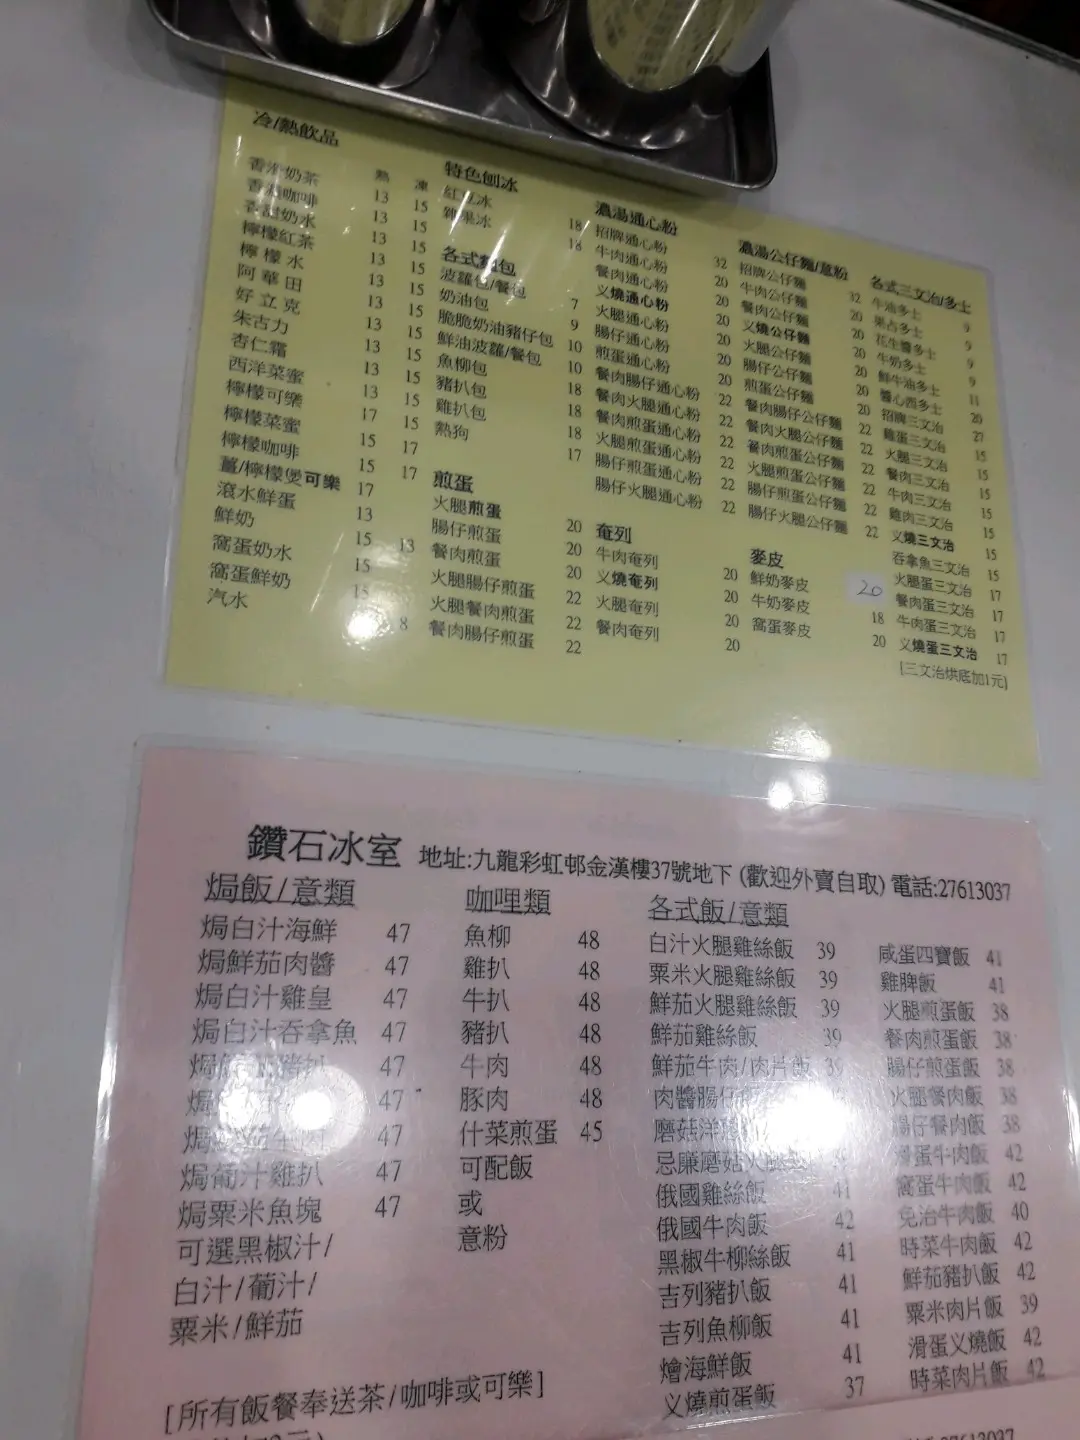 冷/熱飲品
熱 凍
香滑奶茶 13 15
香濃咖啡 13 15
香甜奶水 13 15
檸檬紅茶 13 15
檸檬水 13 15
阿華田 13 15
好立克 13 15
朱古力 13 15
杏仁霜 13 15
西洋菜蜜 13 15
檸檬可樂 17
檸檬菜蜜 15 17
檸檬咖啡 15 17
薑/檸檬煲可樂 17
滾水鮮蛋 13
鮮奶 15 13
窩蛋奶水 15
窩蛋鮮奶
汽水 8
特色刨冰
紅豆冰 18
雜果冰 18
各式麵包
菠蘿包/餐包 7
奶油包 9
脆脆奶油豬仔包 10
鮮油菠蘿/餐包 10
魚柳包 18
豬扒包 18
雞扒包 18
熱狗 17
煎蛋
火腿煎蛋 20
腸仔煎蛋 20
餐肉煎蛋 20
火腿腸仔煎蛋 22
火腿餐肉煎蛋 22
餐肉腸仔煎蛋 22
濃湯通心粉
招牌通心粉 32
牛肉通心粉 20
餐肉通心粉 20
义燒通心粉 20
火腿通心粉 20
腸仔通心粉 20
煎蛋通心粉 20
餐肉腸仔通心粉 22
餐肉火腿通心粉 22
餐肉煎蛋通心粉 22
火腿煎蛋通心粉 22
腸仔煎蛋通心粉 22
腸仔火腿通心粉 22
奄列
牛肉奄列 20
义燒奄列 20
火腿奄列 20
餐肉奄列 20
濃湯公仔麵/意粉
招牌公仔麵 32
牛肉公仔麵 20
餐肉公仔麵 20
义燒公仔麵 20
火腿公仔麵 20
腸仔公仔麵 20
煎蛋公仔麵 20
餐肉腸仔公仔麵 22
餐肉火腿公仔麵 22
餐肉煎蛋公仔麵 22
火腿煎蛋公仔麵 22
腸仔煎蛋公仔麵 22
腸仔火腿公仔麵 22
麥皮
鮮奶麥皮 20
牛奶麥皮 18
窩蛋麥皮 20
各式三文治/多士
牛油多士 9
果占多士 9
花生醬多士 9
牛奶多士 9
鮮牛油多士 11
醬心西多士 20
招牌三文治 27
雞蛋三文治 15
火腿三文治 15
餐肉三文治 15
牛肉三文治 15
雞肉三文治 15
义燒三文治 15
吞拿魚三文治 15
火腿蛋三文治 17
餐肉蛋三文治 17
牛肉蛋三文治 17
义燒蛋三文治 17
[三文治烘底加1元]
鑽石冰室 地址:九龍彩虹邨金漢樓37號地下 (歡迎外賣自取) 電話:27613037
焗飯/意類
焗白汁海鮮 47
焗鮮茄肉醬 47
焗白汁雞皇 47
焗白汁吞拿魚 47
焗鮮茄豬扒 47
47
47
焗葡汁雞扒 47
焗粟米魚塊 47
可選黑椒汁/
白汁/葡汁/
粟米/鮮茄
[所有飯餐奉送茶/咖啡或可樂]
咖哩類
魚柳 48
雞扒 48
牛扒 48
豬扒 48
牛肉 48
豚肉 48
什菜煎蛋 45
可配飯
或
意粉
各式飯/意類
白汁火腿雞絲飯 39
粟米火腿雞絲飯 39
鮮茄火腿雞絲飯 39
鮮茄雞絲飯 39
鮮茄牛肉/肉片飯 39
肉醬腸仔
磨菇洋
忌廉磨菇火腿
俄國雞絲飯 41
俄國牛肉飯 42
黑椒牛柳絲飯 41
吉列豬扒飯 41
吉列魚柳飯 41
燴海鮮飯 41
义燒煎蛋飯 37
咸蛋四寶飯 41
雞脾飯 41
火腿煎蛋飯 38
餐肉煎蛋飯 38
腸仔煎蛋飯 38
火腿餐肉飯 38
腸仔餐肉飯 38
滑蛋牛肉飯 42
窩蛋牛肉飯 42
免治牛肉飯 40
時菜牛肉飯 42
鮮茄豬扒飯 42
粟米肉片飯 39
滑蛋义燒飯 42
時菜肉片飯 42